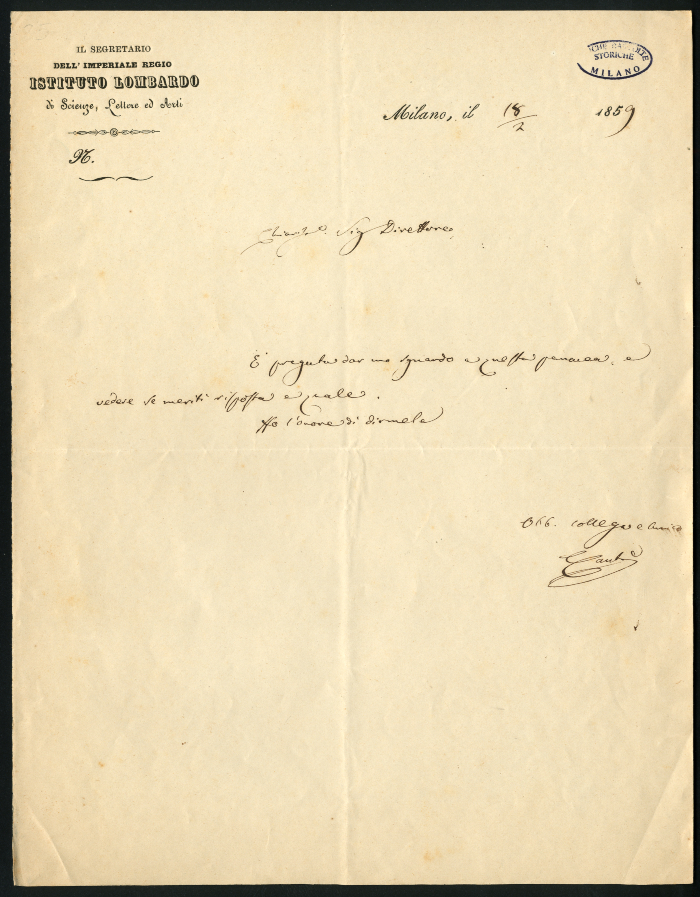 IL SEGRETARIO
DELL' IMPERIALE REGIO
ISTITUTO LOMBARDO
di Scienze, Lettere ed Arti
N.
CHE RACCOLTE
STORICHE
MILANO
Milano, il 18/2 1859
Sig Direttore
È pregato dar uno sguardo a questa e
vedere se meriti risposta e quale.
Ho l'onore di dirmele
Obb. collega e amico
Cantù